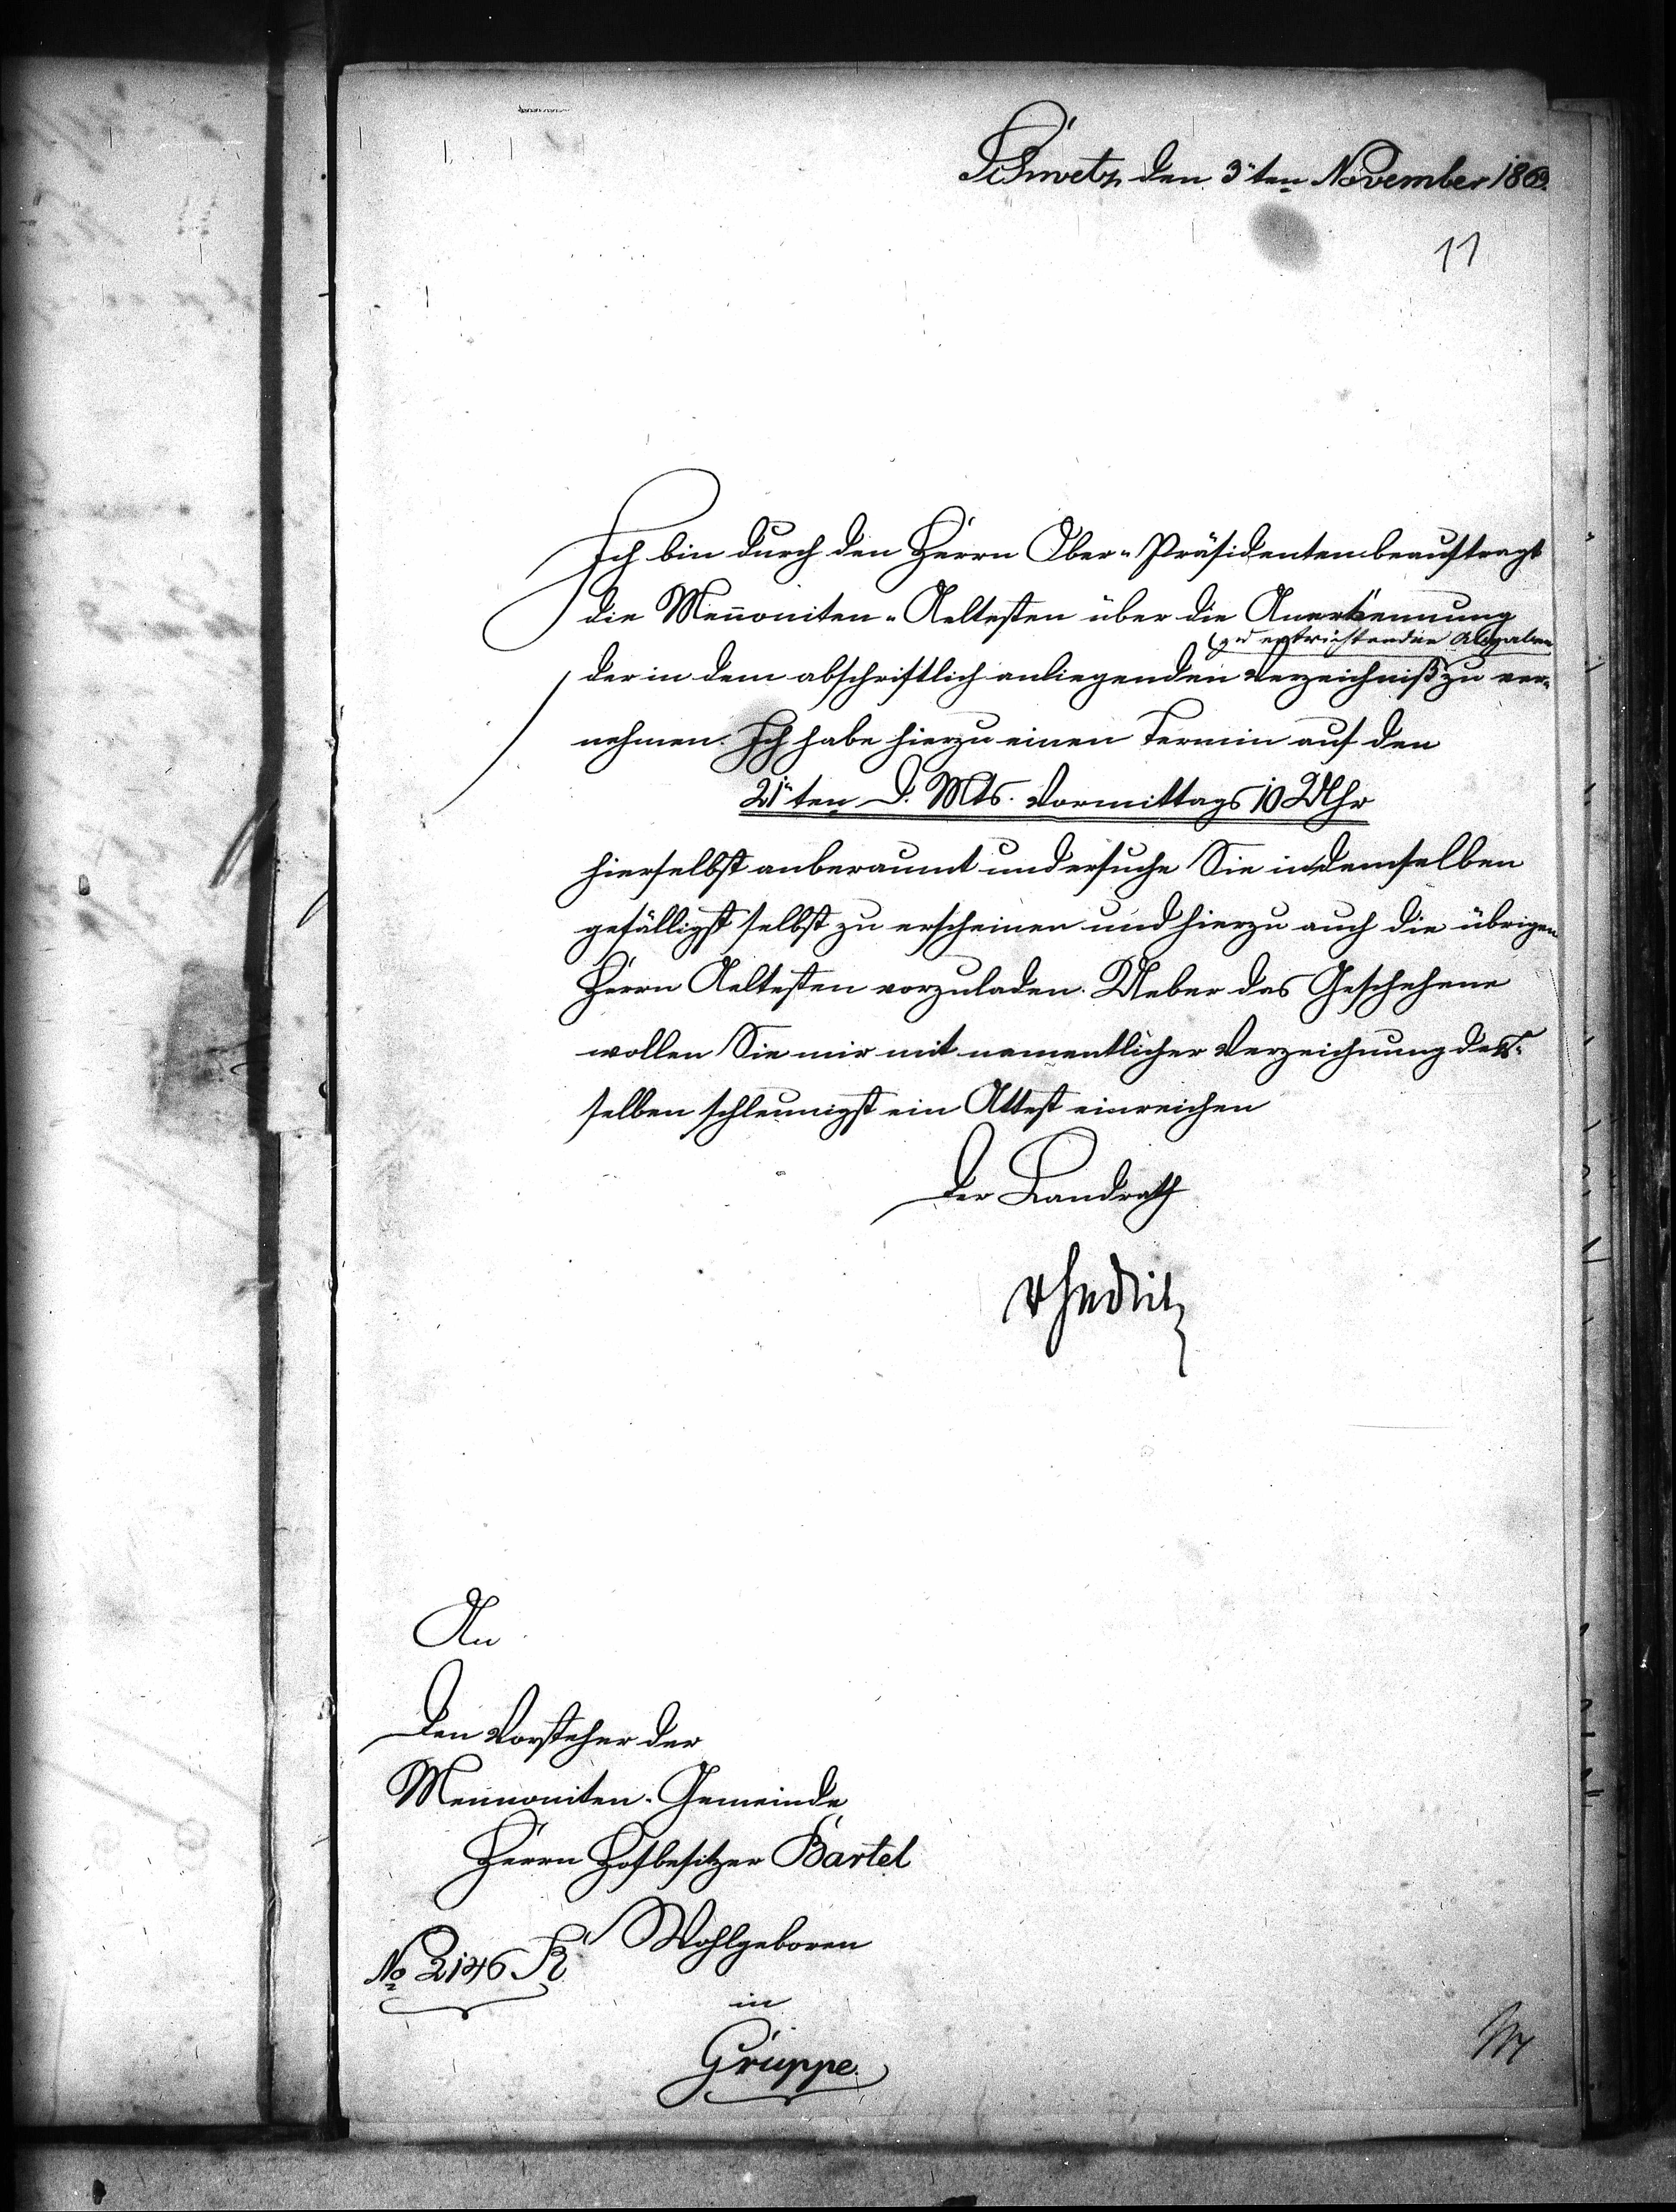 Schwetz den 3ten November 1869.
11
Ich bin durch den Herrn Ober-Präsidenten beauftragt
die Mennoniten-Aeltesten über die Anerkennung
(zu entrichtenden Abgaben
der in dem abschriftlich anliegenden Verzeichniß zu ver-
nehmen. Ich habe hierzu einen Termin auf den
21ten d. Mts. Vormittags 10 Uhr
hierselbst anberaumt und ersuche Sie in demselben
gefälligst selbst zu erscheinen und hierzu auch die übrigen
Herrn Aeltesten vorzuladen. Ueber das Geschehene
wollen Sie mir mit namentlicher Verzeichnung der-
selben schleunigst ein Attest einreichen
Der Landrath
An
Den Vorsteher der
Mennoniten-Gemeinde
Herrn Hofbesitzer Bartel
Wohlgeboren
No 2146 K
in
Gruppe.